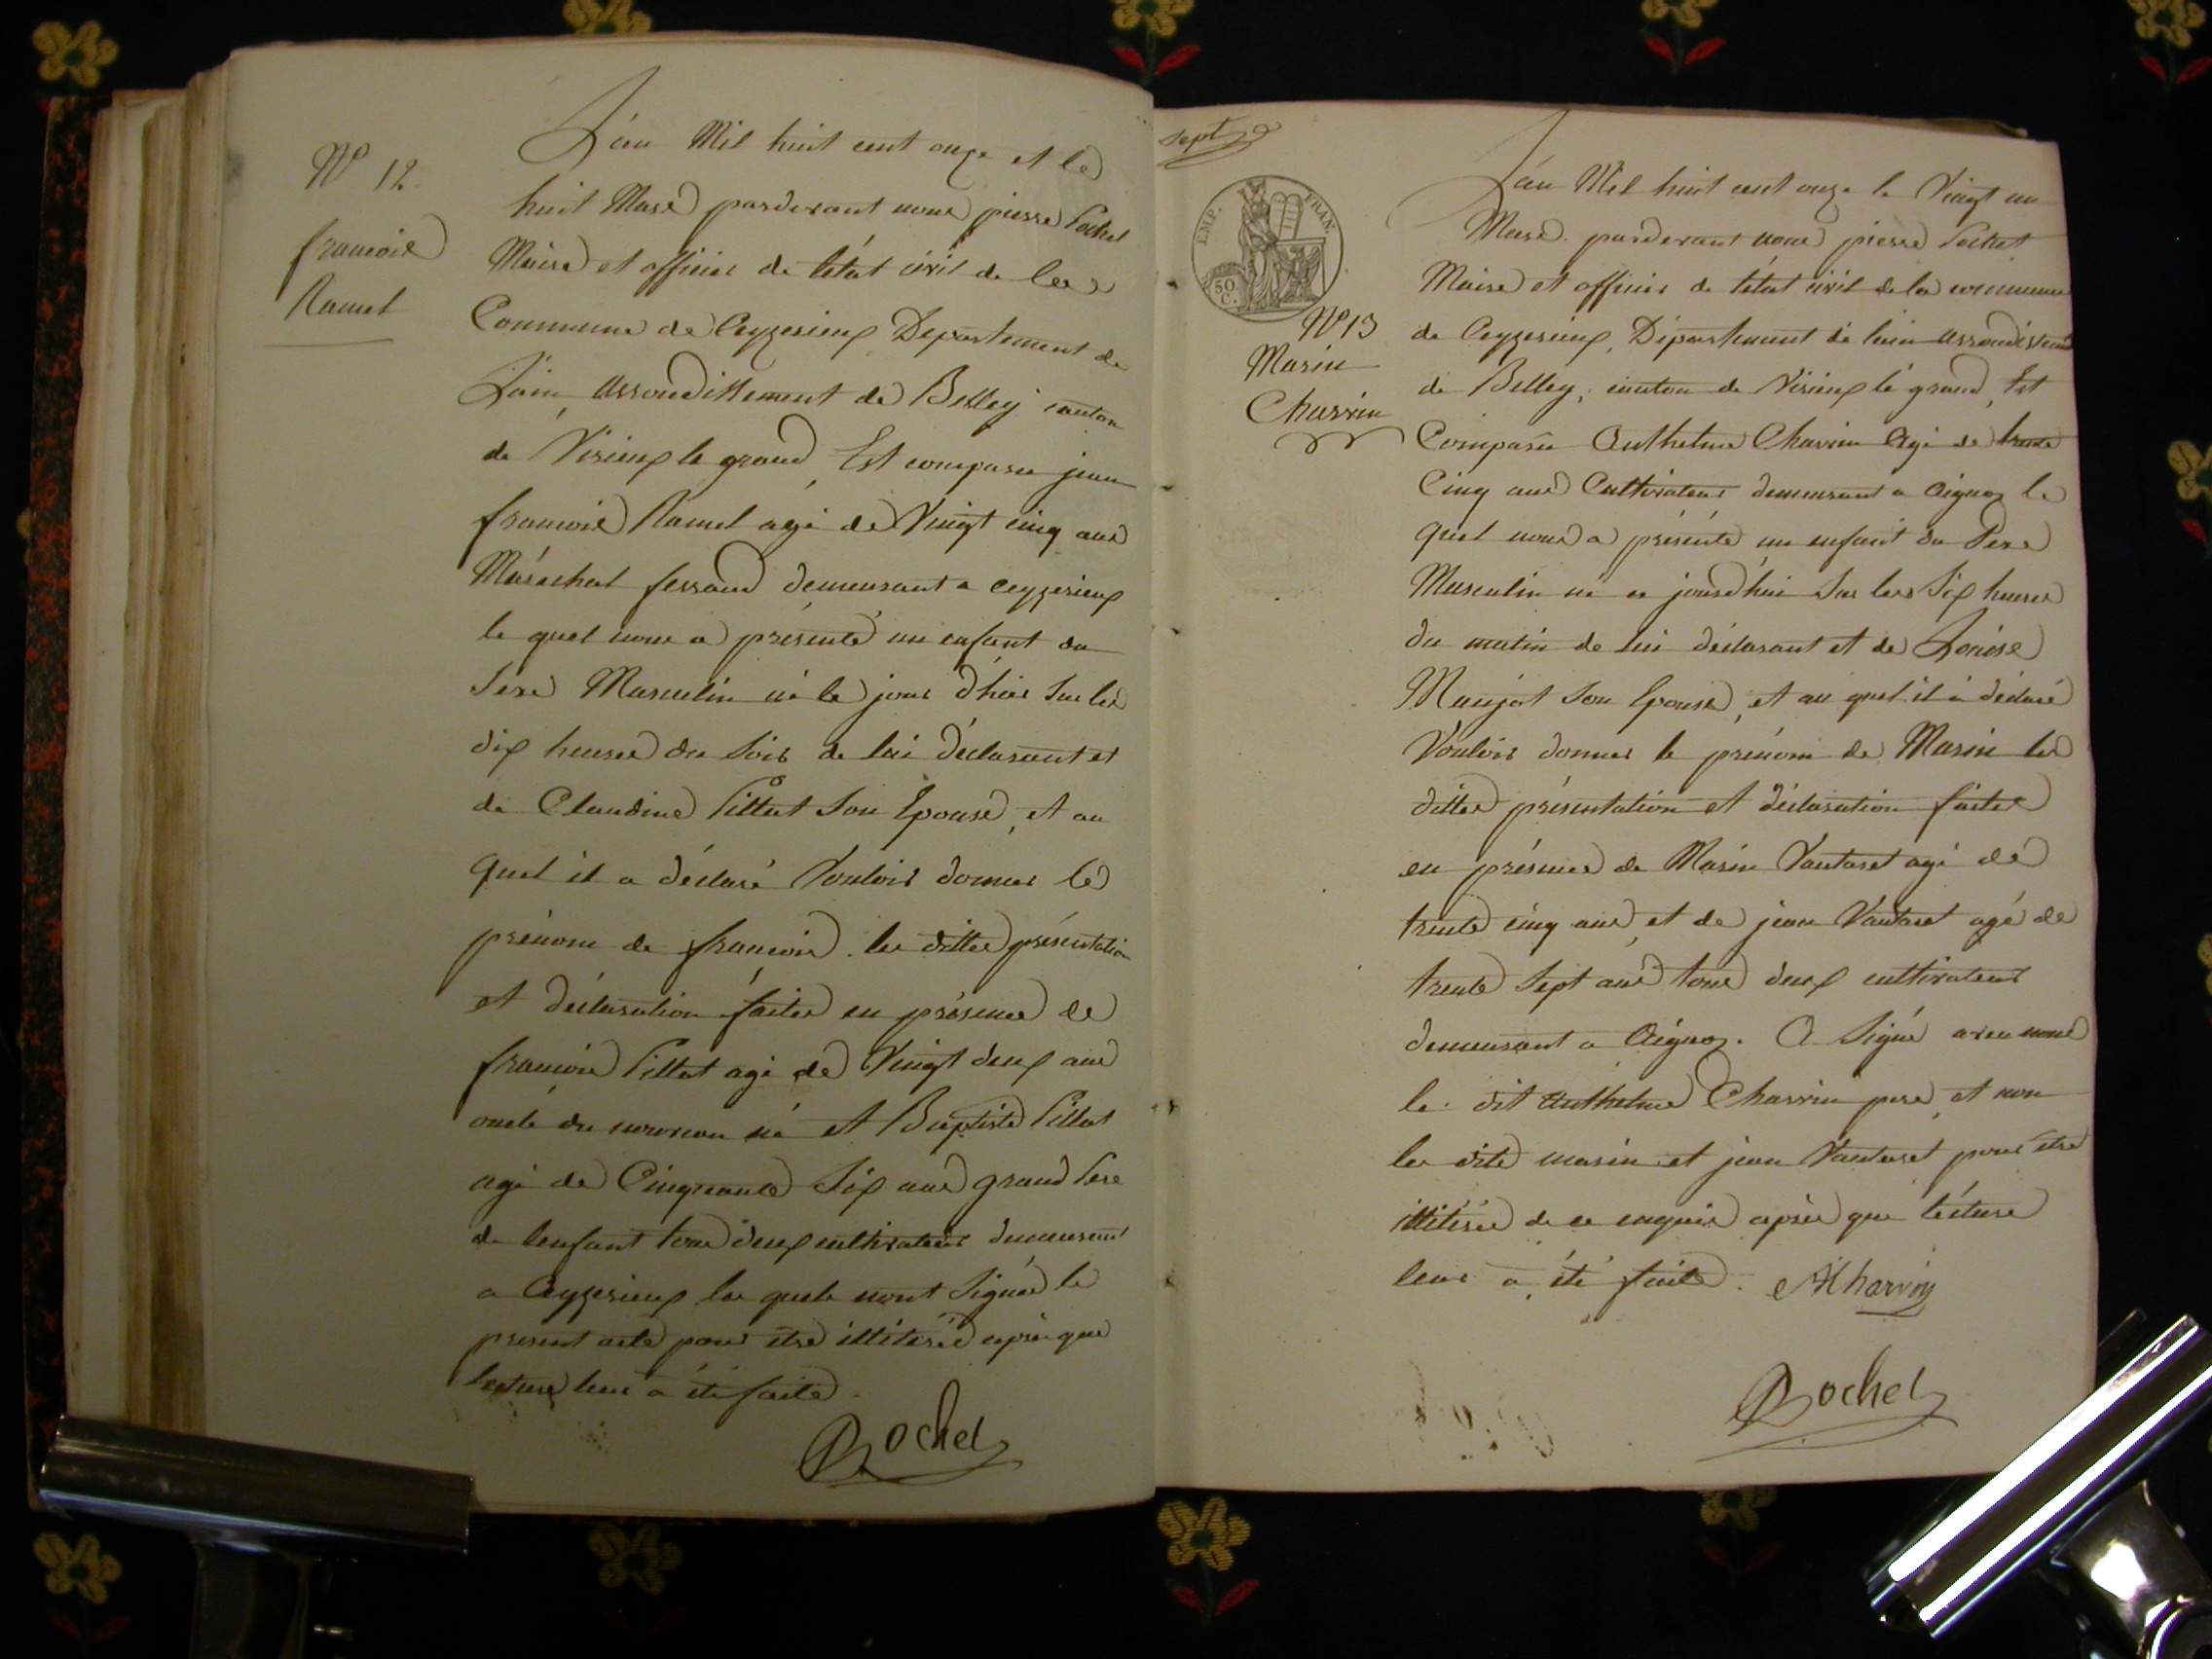 N° 12.
francois
Ramel
L'an Mil huit cent onze et le
huit Mars pardevant nous pierre Pochet
Maire et officier de l'état civil de la
Commune de Ceyzerieux Departement de
L'ain, Arrondissement de Belley canton
de Virieux le grand, Est comparu jean
francois Ramel agé de Vingt cinq ans
Maréchal ferrand demeurant a ceyzerieux
le quel nous a présenté un enfant du
Sexe Masculin né le jour d'hier Sur les
dix heures du Soir de lui déclarant et
de Claudine Pillat Son Epouse, et au
quel il a déclaré Vouloir donner le
prénom de francois. les dittes présentation
et déclaration faites en présence de
francois Pillat agé de Vingt deux ans
oncle du nouveau né et Baptiste Pillat
agé de Cinquante Six ans grand Pere
de lenfant tous deux cultivateurs demeurant
a Ceyzerieux les quels nont Signés le
present acte pour être illitérés après que
lecture leur a été faite.
Pochet
sept
EMP. FRAN.
50 C.
N° 13
Marin
Charvin
L'an Mil huit cent onze le Vingt un
Mars pardevant nous pierre Pochet
Maire et officier de l'état civil de la commune
de Ceyzerieux, Département de l'ain arrondissement
de Belley, canton de Virieux le grand, Est
Comparu Anthelme Charvin Agé de trente
Cinq ans Cultivateur demeurant a Aignoz le
quel nous a présenté un enfant du Sexe
Masculin né ce jourd'hui Sur les Six heures
du matin de lui déclarant et de Louise
Maujot Son Epouse, et au quel il a déclaré
Vouloir donner le prénom de Marin les
dittes présentation et déclaration faites
en présence de Marin Vautaret agé de
trente cinq ans, et de jean Vautaret agé de
trente Sept ans tous deux cultivateurs
demeurant a Aignoz. A Signé avec nous
le dit Anthelme Charvin pere, et non
les dits marin et jean Vautaret pour être
illitérés de ce enquis après que lécture
leur a été faite. ACharvin
Pochet